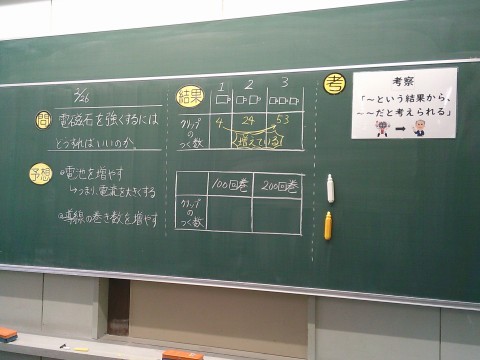 2/26
問
電磁石を強くするには
どうすればいいのか
予想
電池を増やす
つまり、電流を大きくする
導線の巻き数を増やす
結果
1 2 3
クリップのつく数 4 24 53
増えている
100回巻 200回巻
クリップのつく数
考
考察
「～という結果から、
～～だと考えられる」